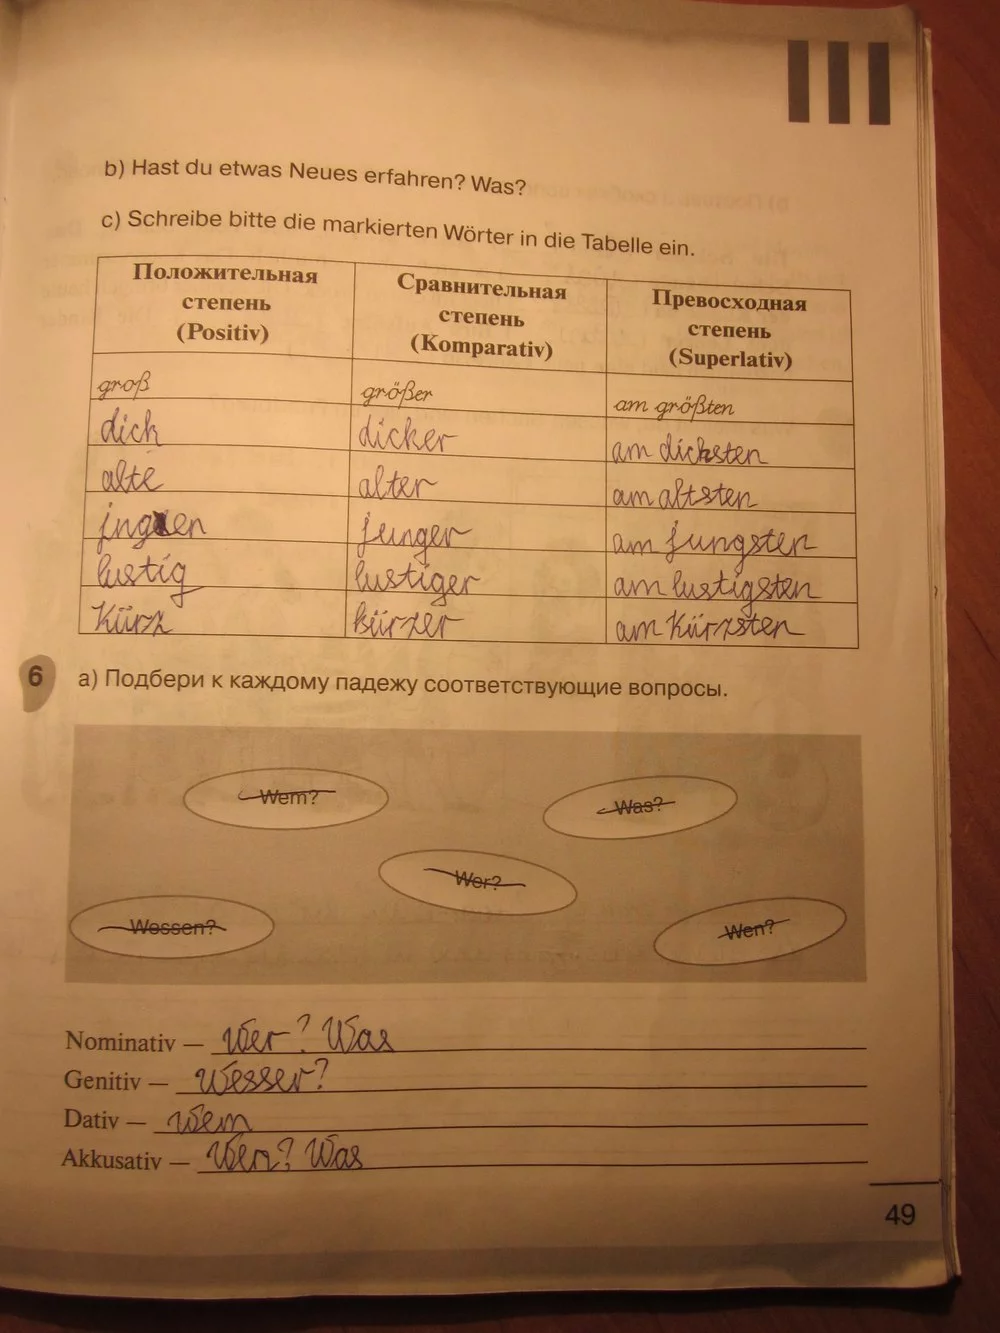 b) Hast du etwas Neues erfahren? Was?
c) Schreibe bitte die markierten Wörter in die Tabelle ein.
Положительная степень (Positiv) Сравнительная степень (Komparativ) Превосходная степень (Superlativ)
groß größer am größten
dick dicker am dicksten
alte alter am altsten
junger am jungsten
lustig lustiger am lustigsten
Kürz kürzer am Kürzsten
6 a) Подбери к каждому падежу соответствующие вопросы.
Wem? Was?
Wer?
Wessen? Wen?
Nominativ — Wer? Was
Genitiv — Wesser?
Dativ — Wem
Akkusativ — Wen? Was
49